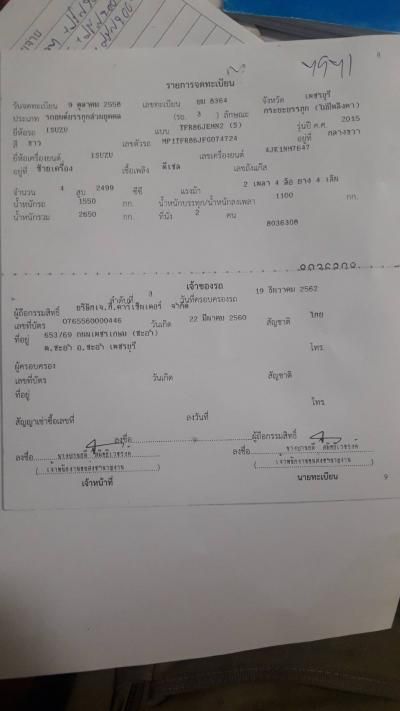 รายการจดทะเบียน
วันจดทะเบียน 9 ตุลาคม 2558 เลขทะเบียน ยม 8364 จังหวัด เพชรบุรี
ประเภท รถยนต์บรรทุกส่วนบุคคล (รย. 3 ) ลักษณะ กระบะบรรทุก (ไม่มีหลังคา)
ยี่ห้อรถ ISUZU แบบ TFR86JEMN2 (S) รุ่นปี ค.ศ. 2015
สี ขาว เลขตัวรถ MP1TFR86JFG074724 อยู่ที่ กลางขวา
ยี่ห้อเครื่องยนต์ ISUZU เลขเครื่องยนต์ 4JK1NH7647
อยู่ที่ ซ้ายเครื่อง เชื้อเพลิง ดีเซล เลขถังแก๊ส
จำนวน 4 สูบ 2499 ซีซี แรงม้า 2 เพลา 4 ล้อ ยาง 4 เส้น
น้ำหนักรถ 1550 กก. น้ำหนักบรรทุก/น้ำหนักลงเพลา 1100 กก.
น้ำหนักรวม 2650 กก. ที่นั่ง 2 คน
8036308
เจ้าของรถ
ลำดับที่ 3 วันที่ครอบครองรถ 19 ธันวาคม 2562
ผู้ถือกรรมสิทธิ์ บริษัทเจ.ที.คาร์ เซ็นเตอร์ จำกัด
เลขที่บัตร 0765560000446 วันเกิด 22 มีนาคม 2560 สัญชาติ ไทย
ที่อยู่ 653/69 ถนนเพชรเกษม (ชะอำ)
ต.ชะอำ อ.ชะอำ เพชรบุรี โทร.
ผู้ครอบครอง
เลขที่บัตร วันเกิด สัญชาติ
ที่อยู่
โทร.
สัญญาเช่าซื้อเลขที่ ลงวันที่
ลงชื่อ ผู้ถือกรรมสิทธิ์
ลงชื่อ ลงชื่อ
(เจ้าพนักงานขนส่งชำนาญงาน) (เจ้าพนักงานขนส่งชำนาญงาน)
เจ้าหน้าที่ นายทะเบียน
9